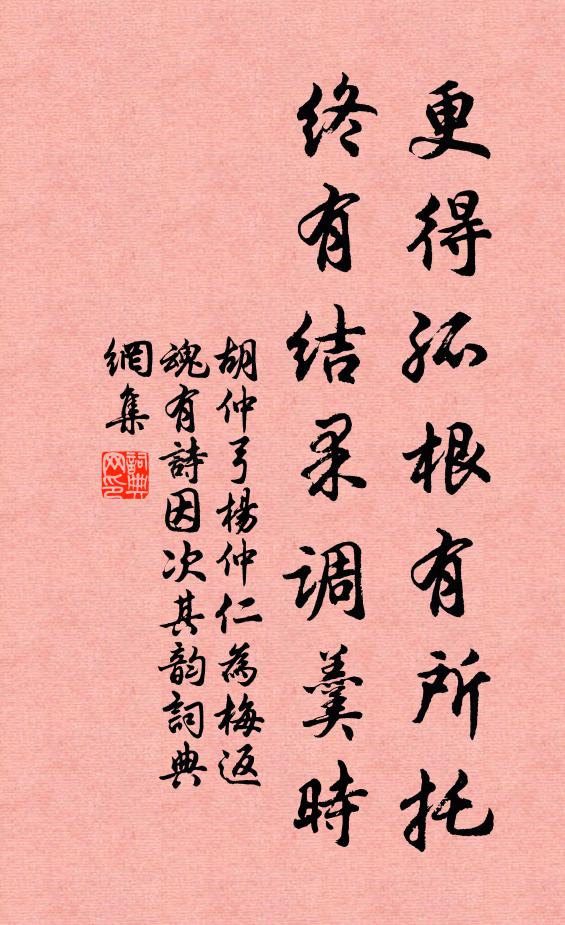 更得孤根有所托
終有结果調羹時
胡仲弓楊仲仁為梅返
魂有詩因次其韵詞典
網集
詞典
网印